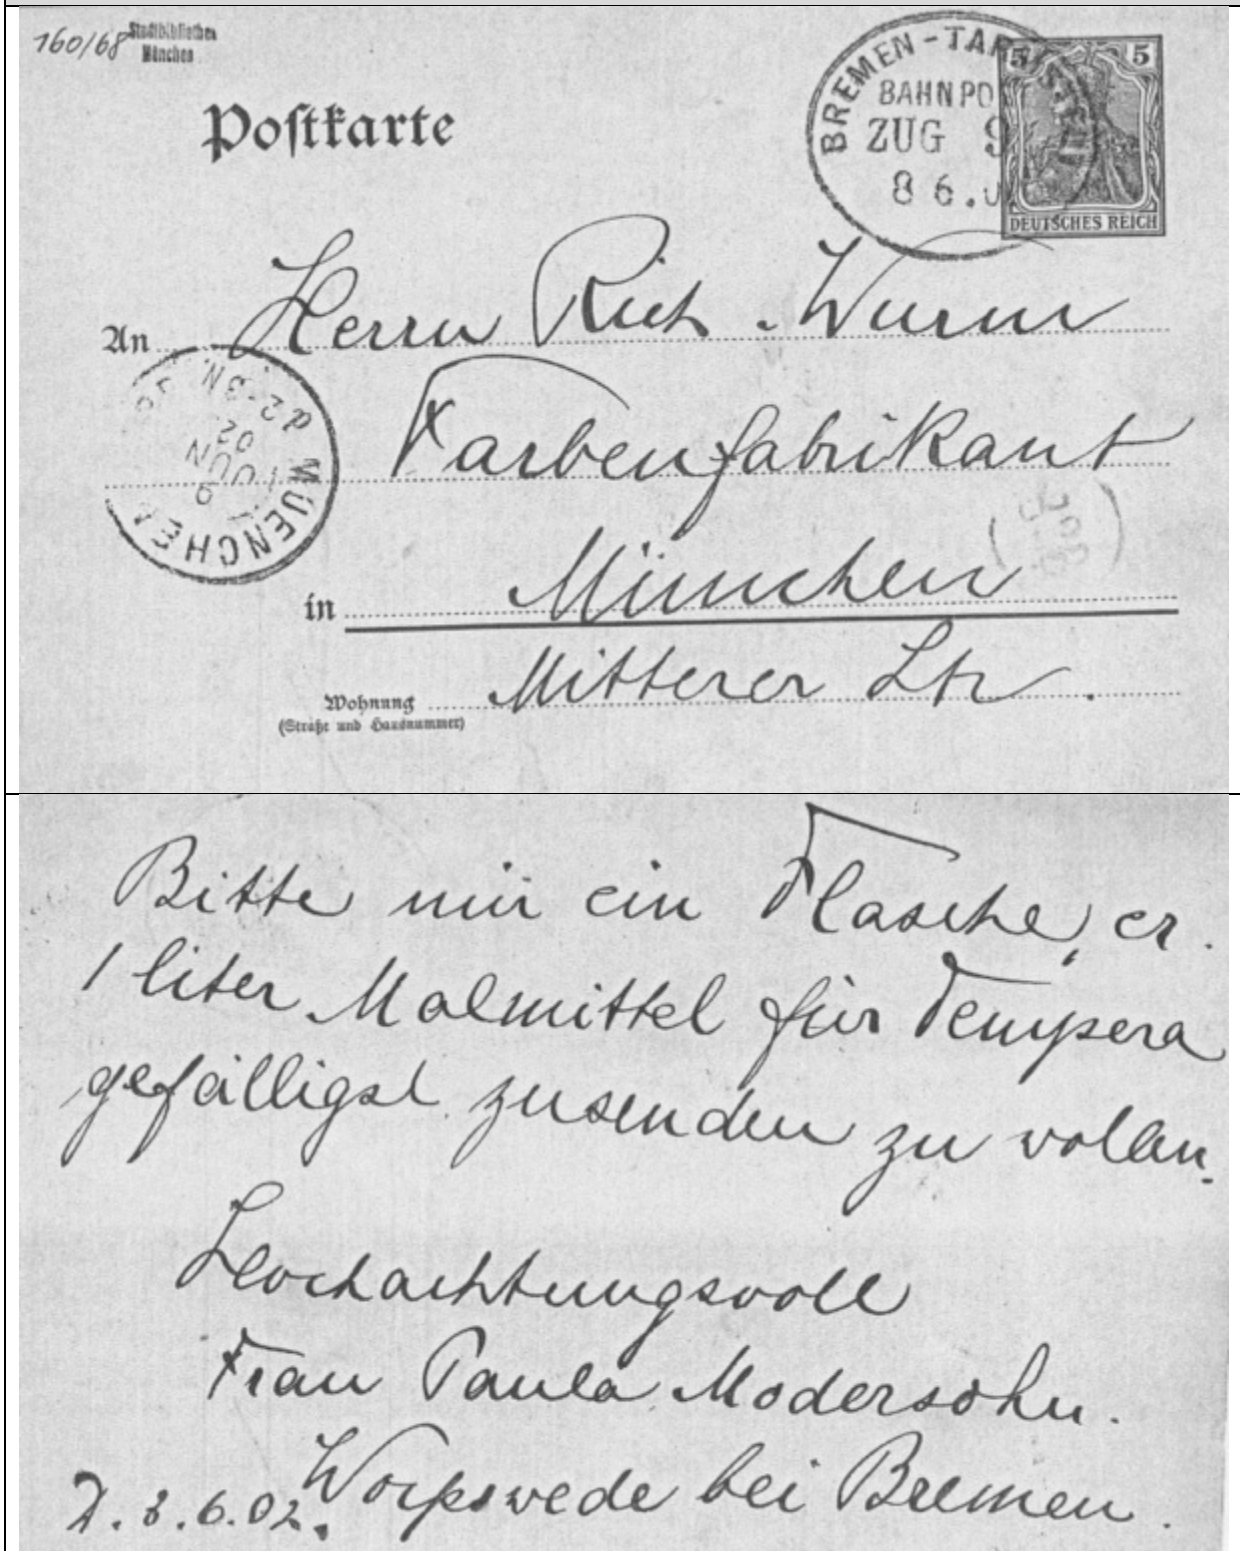 160/68 Stadtbibliothek
München
Postkarte
BREMEN-TAR
BAHNPO
ZUG 9
8 6.0
5 5
DEUTSCHES REICH
An Herrn Rich. Wurm
Farbenfabrikant
MUENCHEN
9 JUN
02
2-3N.
in München
Wohnung Mitterer Str.
(Straße und Hausnummer)
Bitte mir ein Flasche, cr.
1 liter Malmittel für Tempera
gefälligst zusenden zu wollen.
Hochachtungsvoll
Frau Paula Modersohn.
Worpswede bei Bremen.
D. 8.6.02.